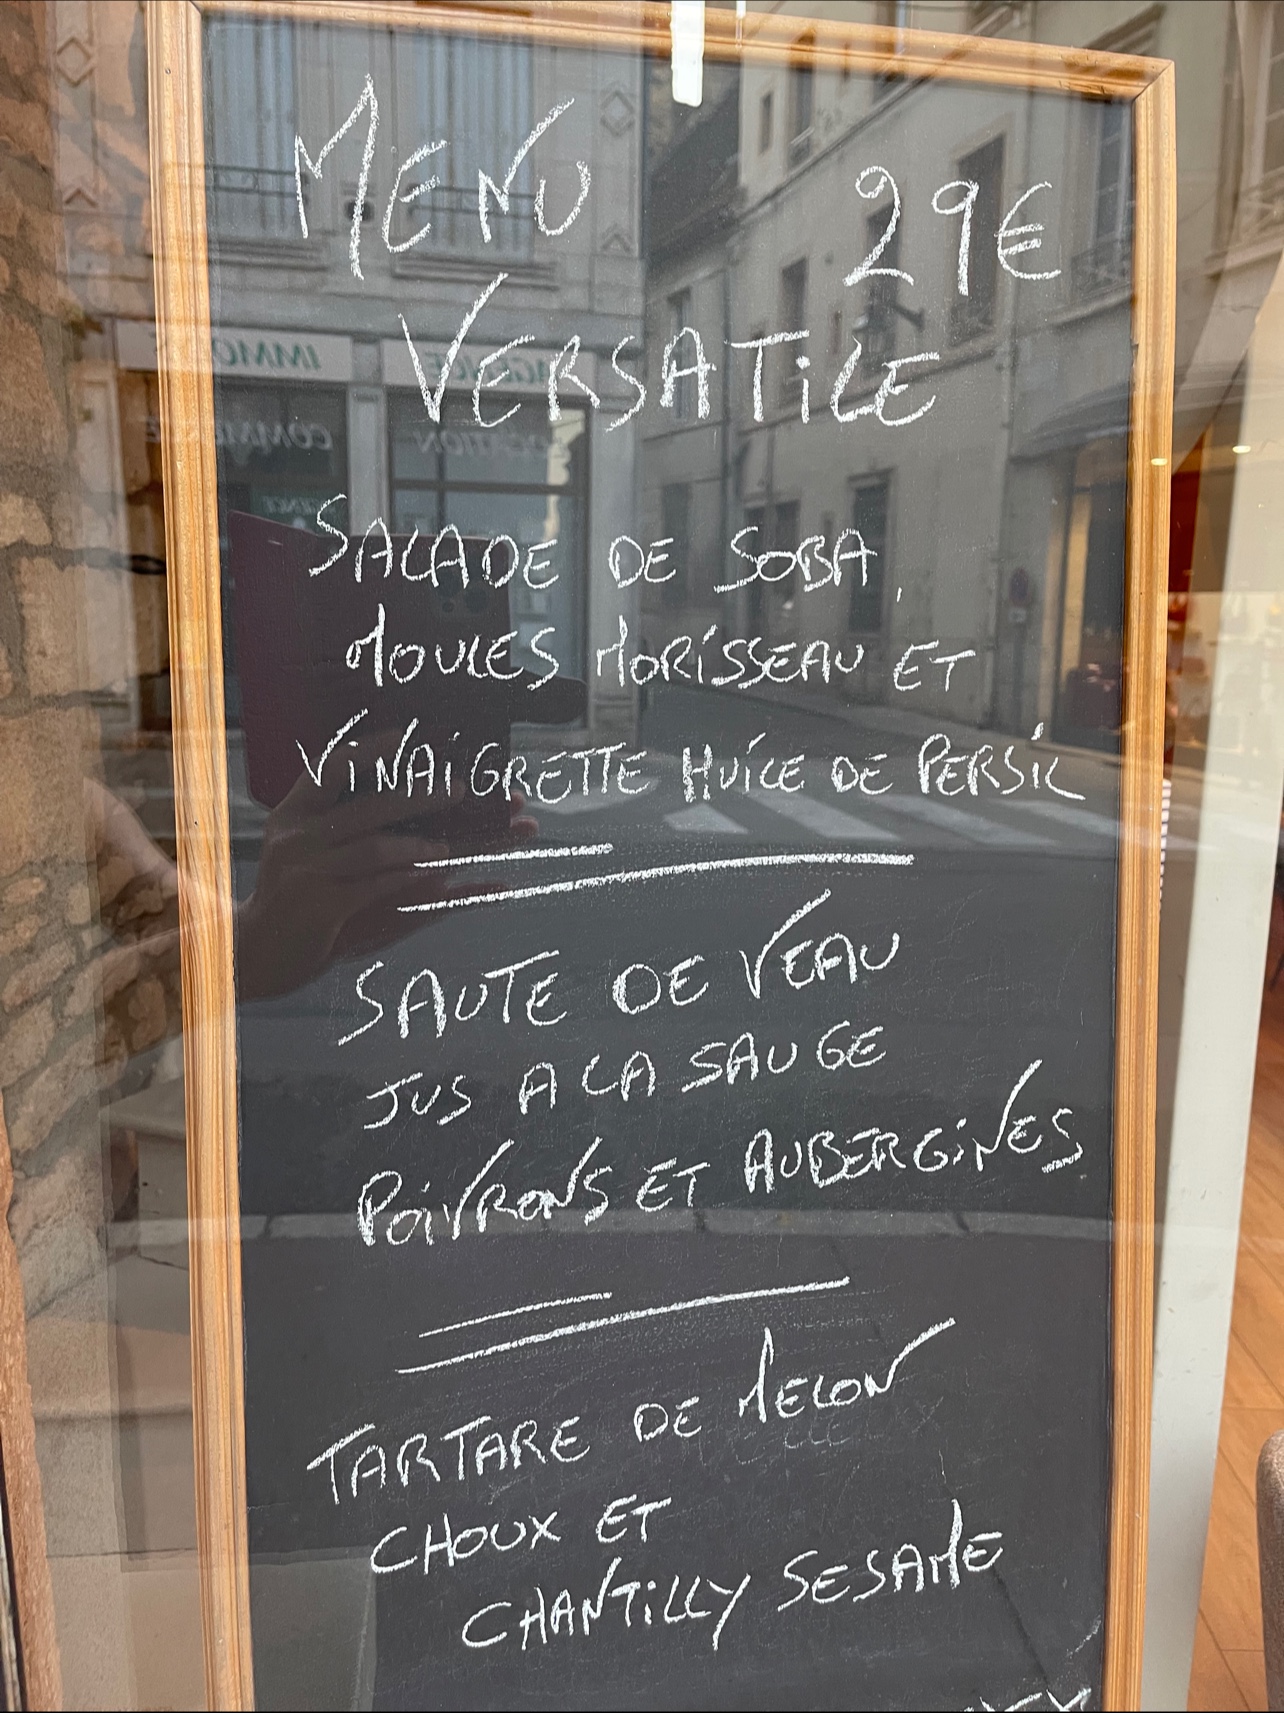 MENU 29€
VERSATiLE
SALADE DE SOBA,
MOULES MORiSSEAU ET
ViNAiGRETTE HUiLE DE PERSiL
SAUTE DE VEAU
JUS A LA SAUGE
POiVRONS ET AUBERGiNES
TARTARE DE MELON
CHOUX ET
CHANTiLLY SESAME
IMMO
AGENCE
LOCATION